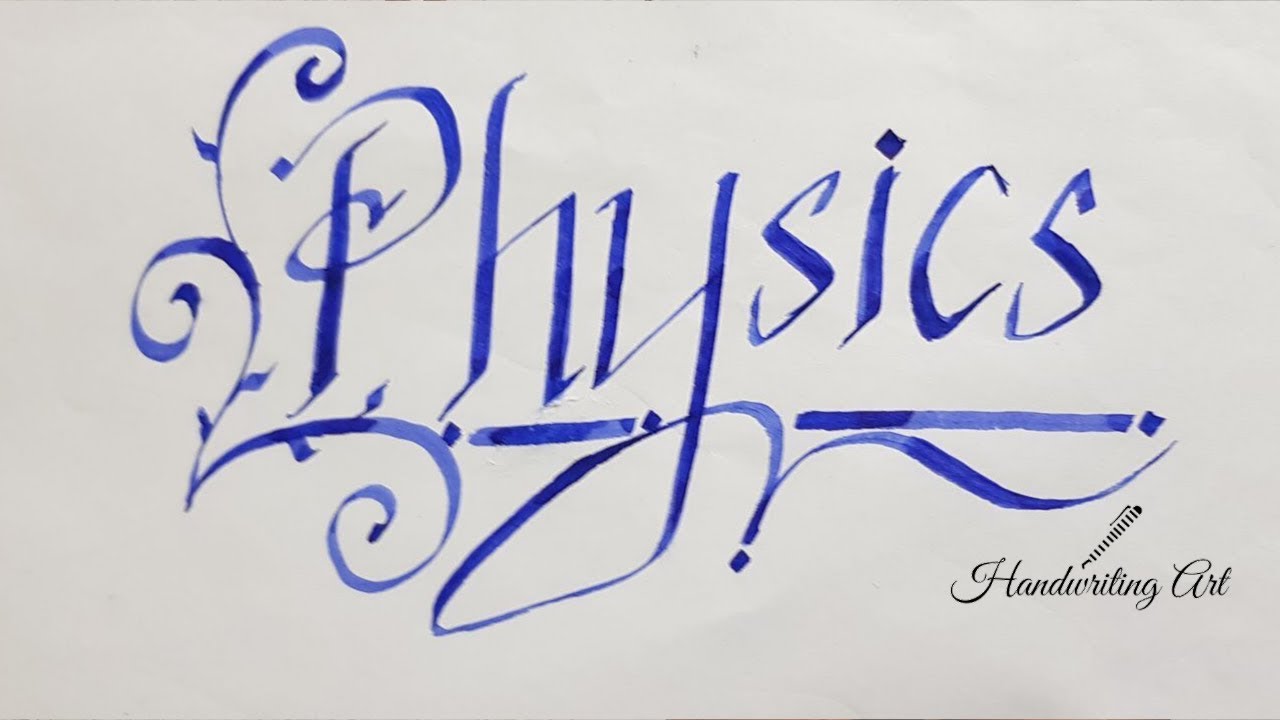 Physics
Handwriting Art